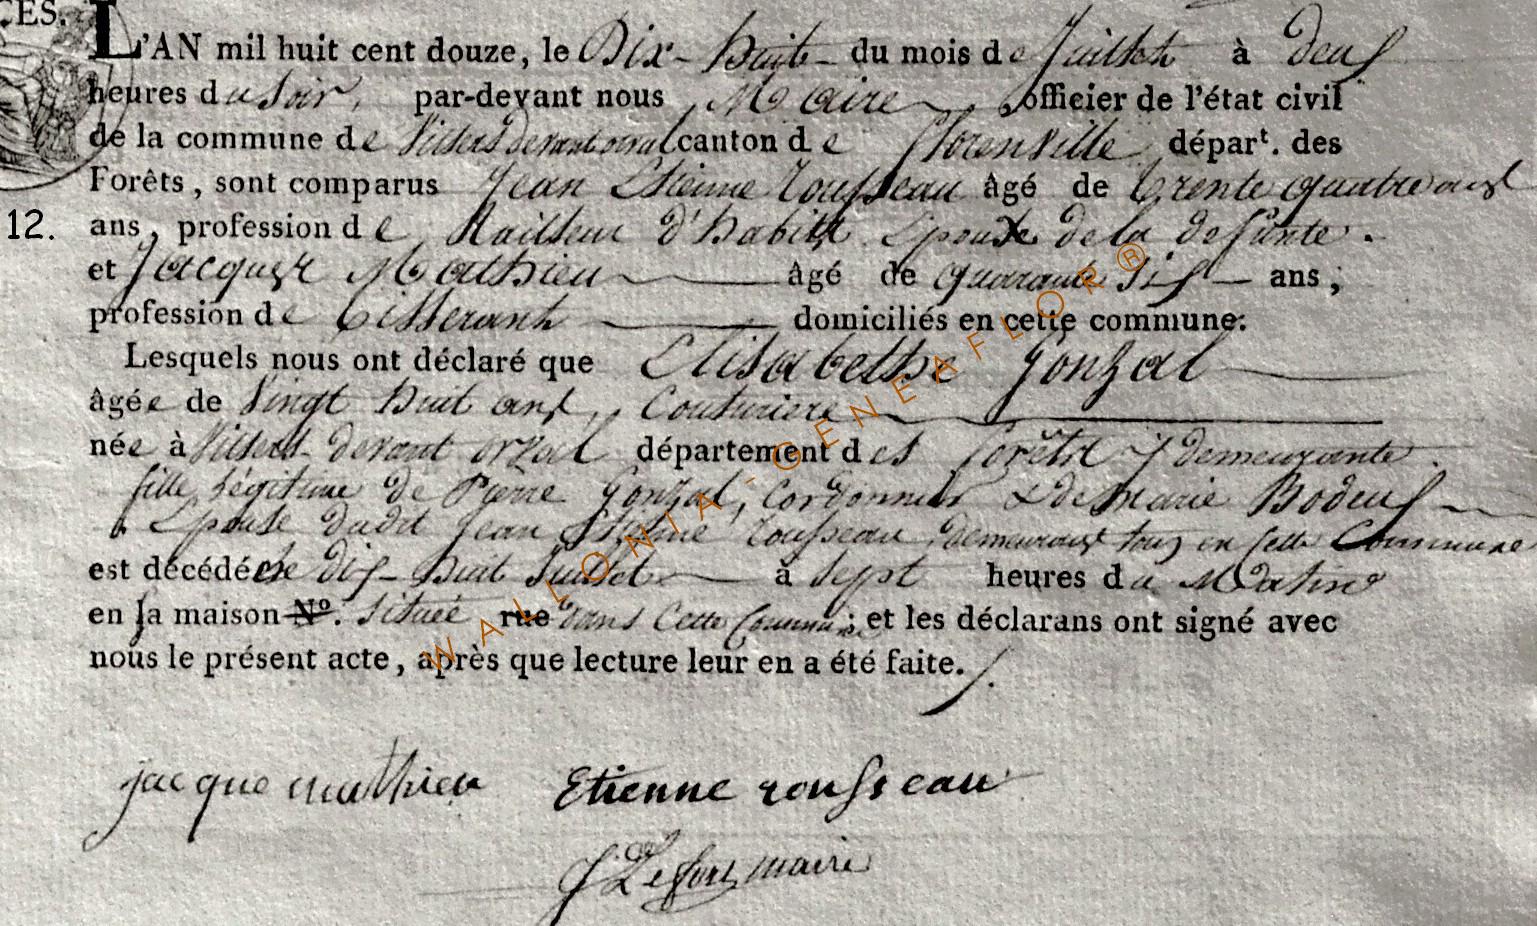 CES.
L'AN mil huit cent douze, le Dix-huit du mois de Juillet à deux
heures du soir, par-devant nous Maire officier de l'état civil
de la commune de Villers devant orval canton de florenville départ. des
Forêts, sont comparus Jean Etienne Rousseau âgé de trente quatre ans
12. ans, profession de tailleur d'habits Epoux de la defunte.
et Jacques Mathieu âgé de quarante six ans;
profession de tisserant domiciliés en cette commune:
Lesquels nous ont déclaré que Elisabethe Gonzal
âgée de vingt huit ans, Couturiere
née à Villers devant orval département des forêts y demeurante.
fille légitime de Pierre Gonzal, Cordonnier & de Marie Bodeux
Epouse dudit Jean Etienne Rousseau, demeurant tous en cette Commune
est décédée le dix-huit Juillet à sept heures du Matin
en sa maison No. située rue dans Cette Commune; et les déclarans ont signé avec
nous le présent acte, après que lecture leur en a été faite.
jacque mathieu Etienne rousseau
J Lefort maire
WALLONIA-GENEAFLOR®